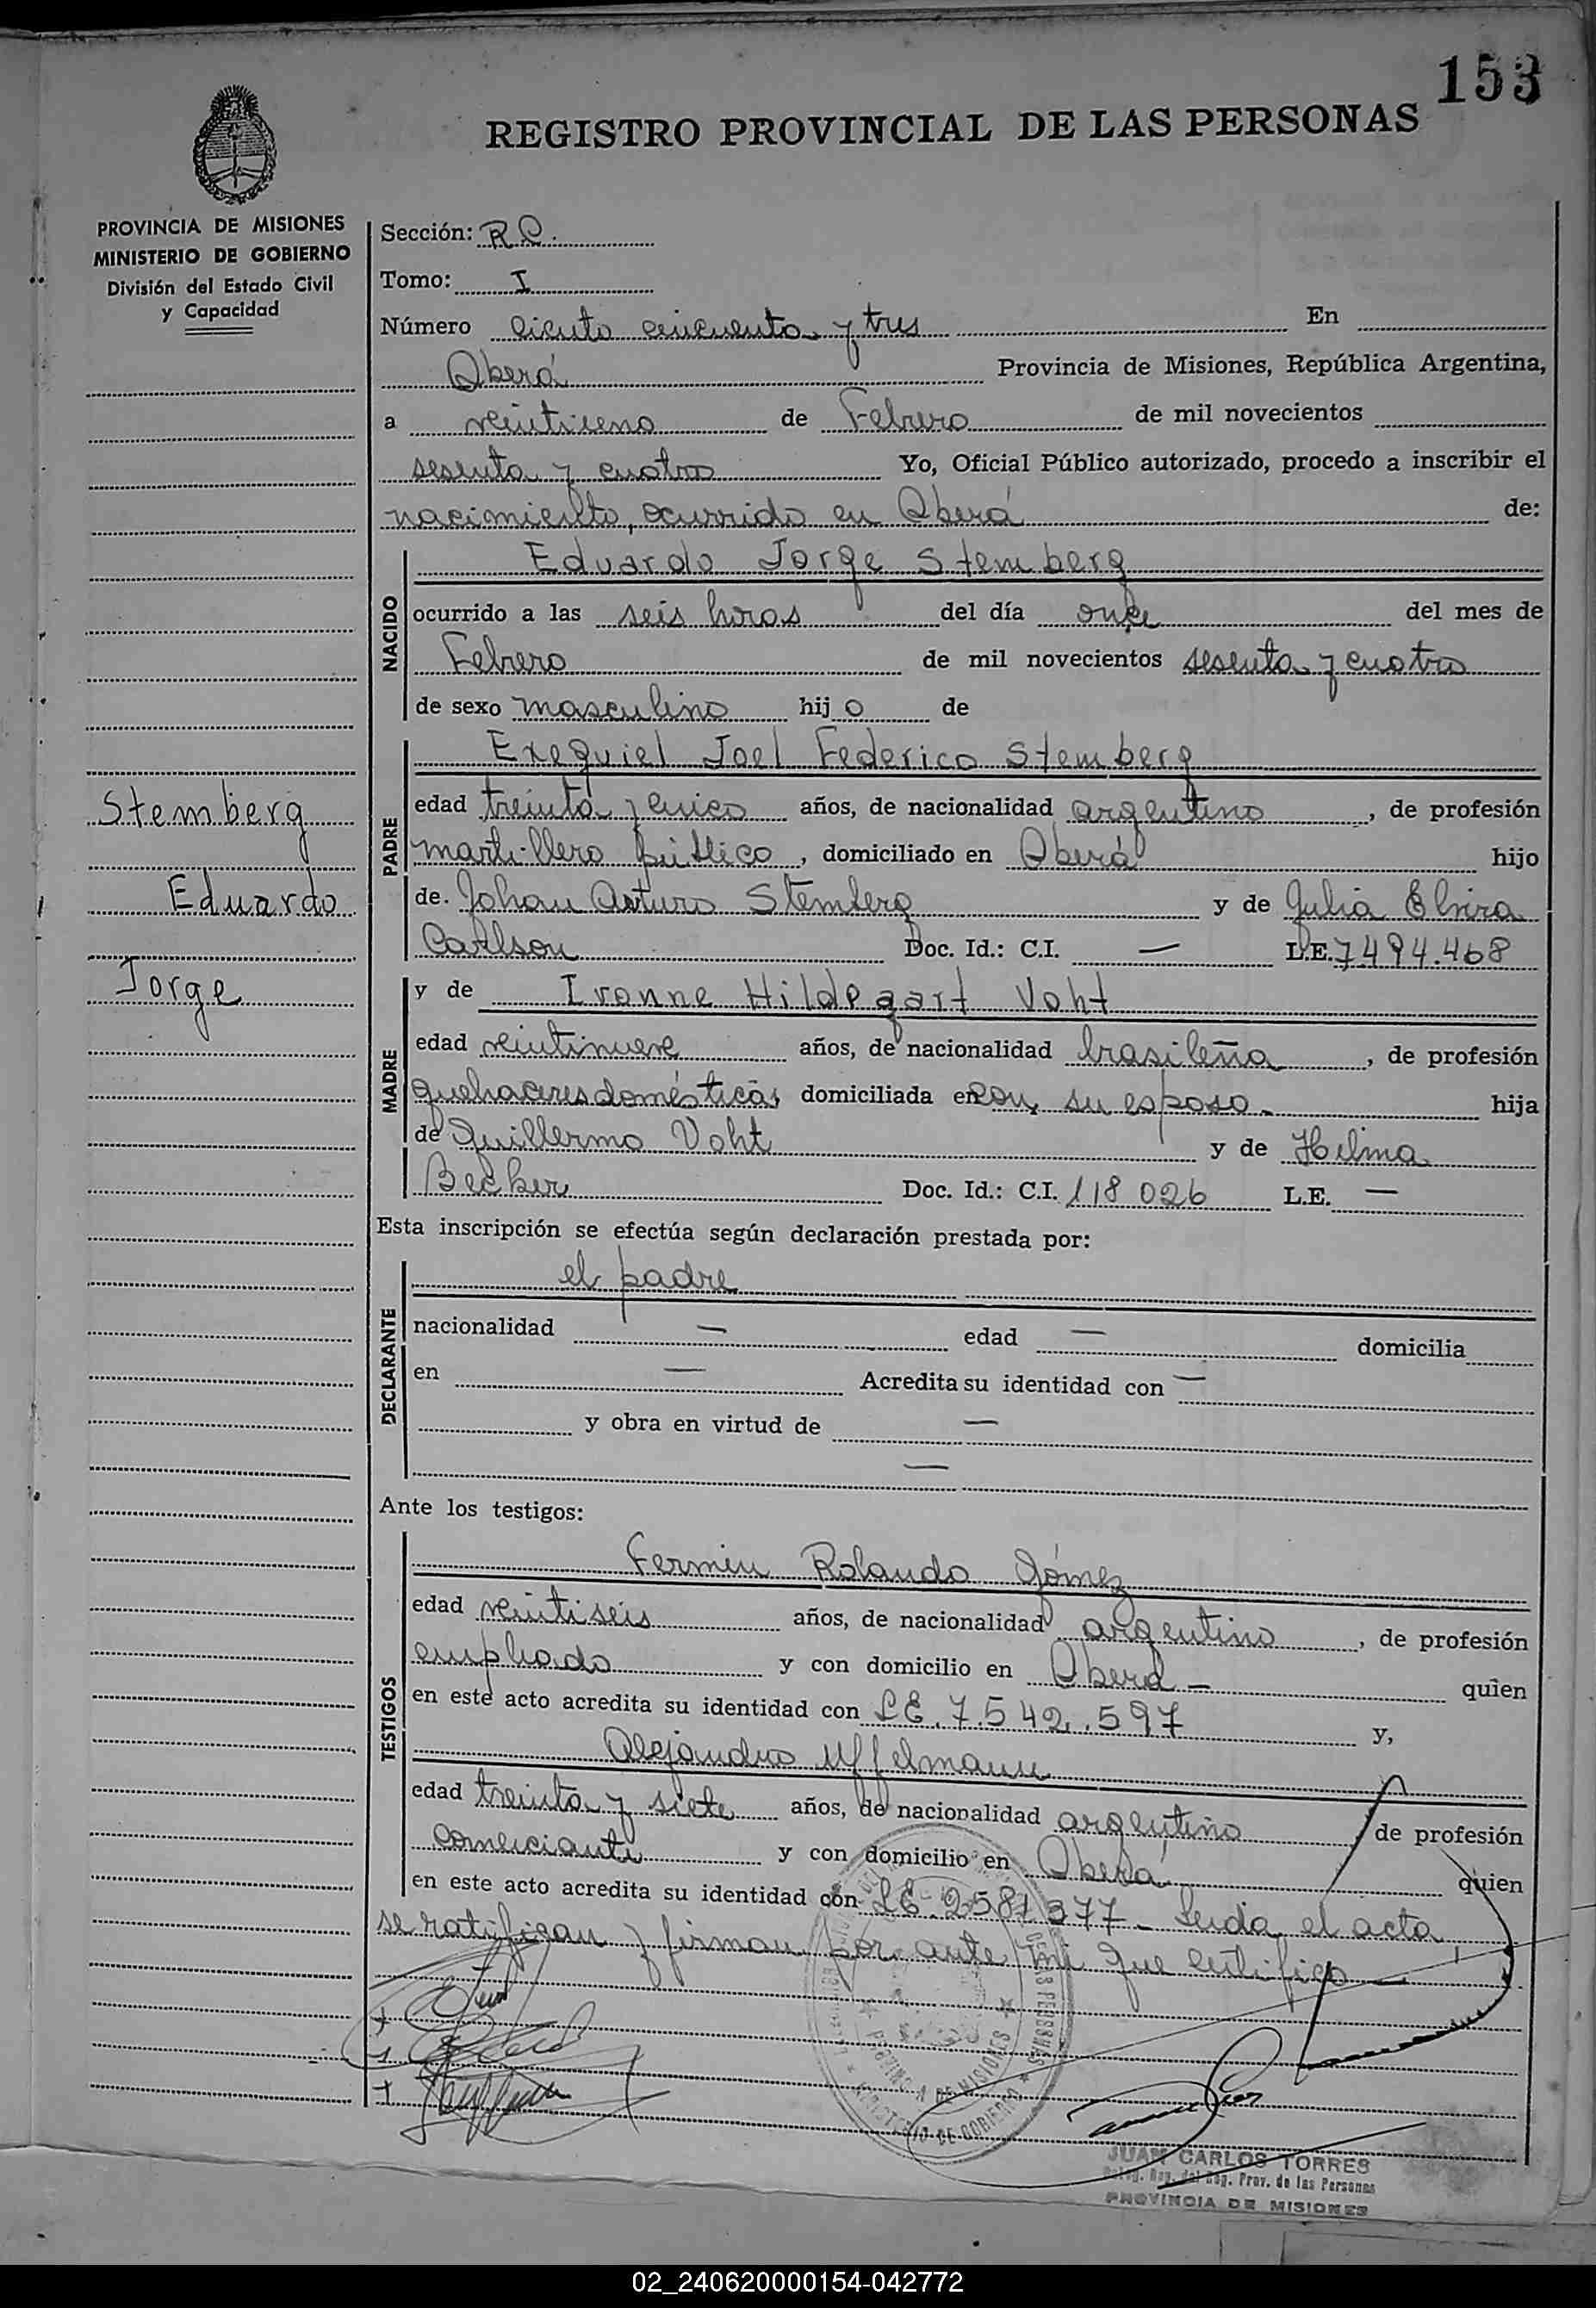 153
REGISTRO PROVINCIAL DE LAS PERSONAS
PROVINCIA DE MISIONES
MINISTERIO DE GOBIERNO
División del Estado Civil
y Capacidad
Stemberg
Eduardo
Jorge
Sección: R.C.
Tomo: I
Número ciento cincuenta y tres En
Oberá Provincia de Misiones, República Argentina,
a veintiuno de Febrero de mil novecientos
sesenta y cuatro Yo, Oficial Público autorizado, procedo a inscribir el
nacimiento, ocurrido en Oberá de:
NACIDO
Eduardo Jorge Stemberg
ocurrido a las seis horas del día once del mes de
Febrero de mil novecientos sesenta y cuatro
de sexo masculino hijo de
PADRE
Exequiel Joel Federico Stemberg
edad treinta y cinco años, de nacionalidad argentino, de profesión
martillero público, domiciliado en Oberá hijo
de. Johan Arturo Stemberg y de Julia Elvira
Carlson Doc. Id.: C.I. — L.E. 7494.468
MADRE
y de Ivonne Hildegart Voht
edad veintinueve años, de nacionalidad brasileña, de profesión
quehaceres domésticos domiciliada en con su esposo. hija
de Guillermo Voht y de Helma
Becker Doc. Id.: C.I. 118 026 L.E. —
Esta inscripción se efectúa según declaración prestada por:
DECLARANTE
el padre
nacionalidad — edad — domicilia
en — Acredita su identidad con —
y obra en virtud de —
—
Ante los testigos:
TESTIGOS
Fermin Rolando Gómez
edad veintiseis años, de nacionalidad argentino, de profesión
empleado y con domicilio en Oberá — quien
en este acto acredita su identidad con LE. 7.542.597 y,
Alejandro Uffelmann
edad treinta y siete años, de nacionalidad argentino de profesión
comerciante y con domicilio en Oberá quien
en este acto acredita su identidad con LE. 2581377 - Leida el acta
se ratifican y firman por ante mi que certifico —
PROVINCIA DE MISIONES
MINISTERIO DE GOBIERNO
JUAN CARLOS TORRES
Prov. de las Personas
PROVINCIA DE MISIONES
02_240620000154-042772